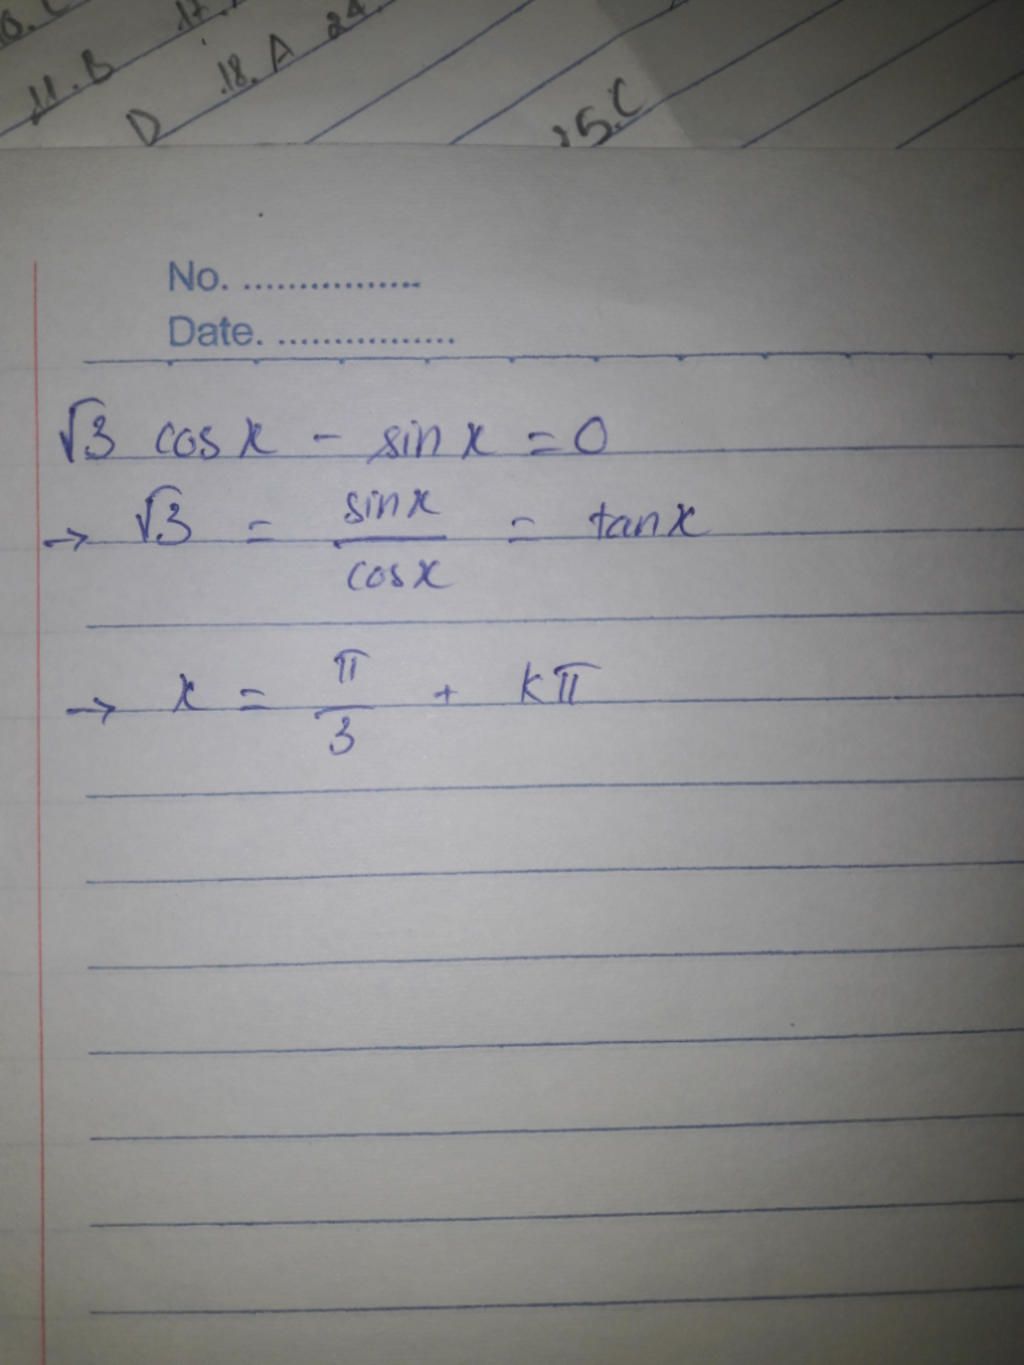 11. B
18. A
24.
D
25.C
No. .................
Date. ................
√3 cosx - sinx = 0
→ √3 = sinx/cosx = tanx
→ x = π/3 + kπ